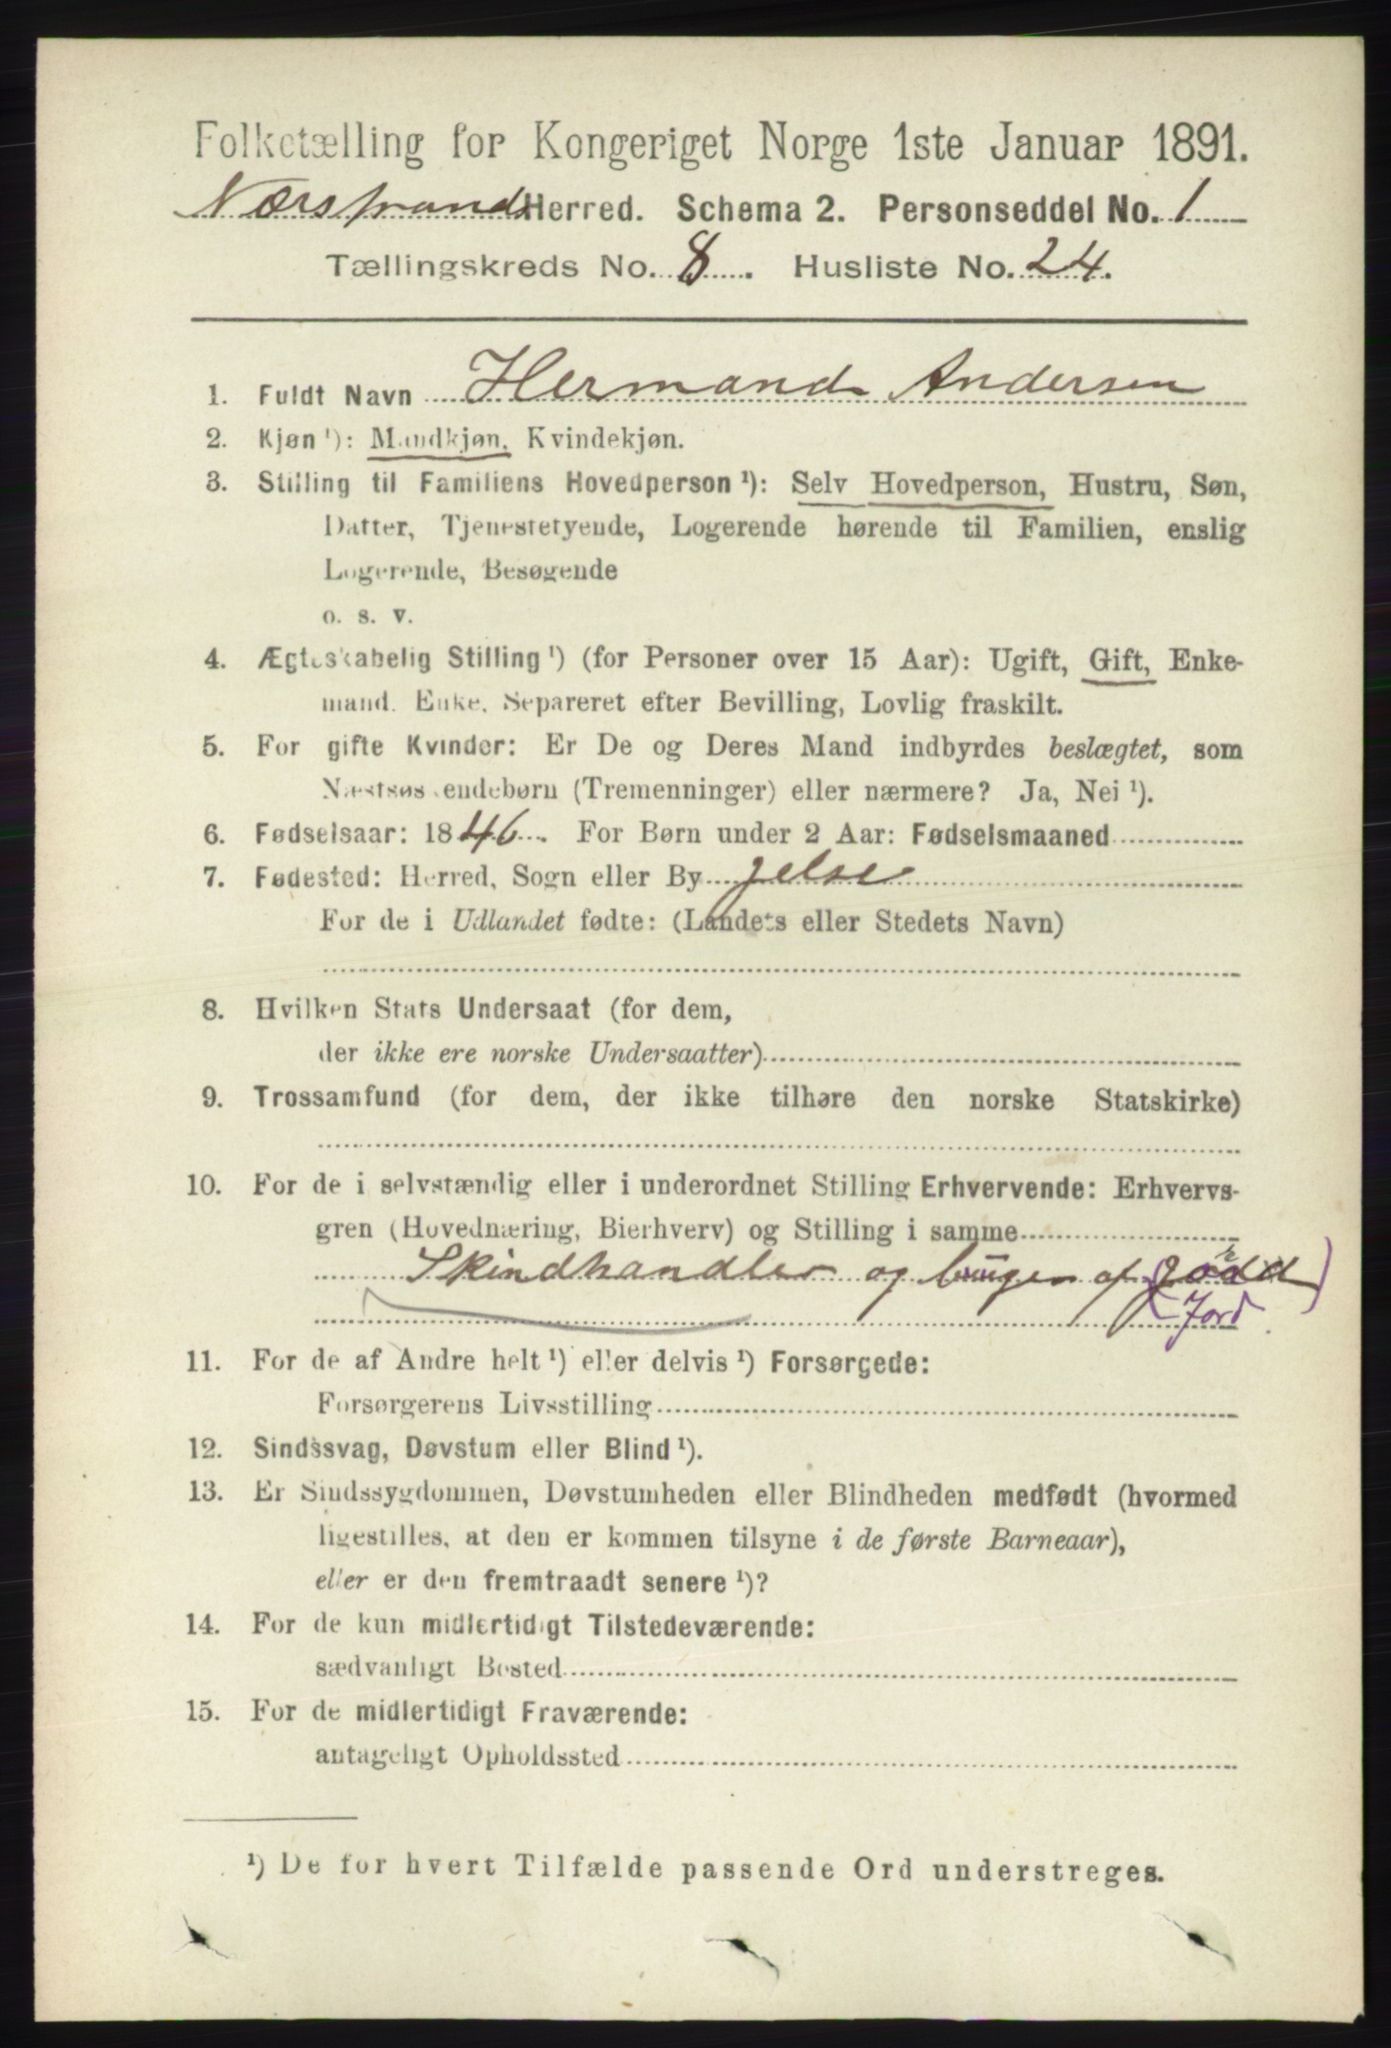 Folketælling for Kongeriget Norge 1ste Januar 1891.
Nærstrands Herred. Schema 2. Personseddel No. 1
Tællingskreds No. 8. Husliste No. 24.
1. Fuldt Navn Hermand Andersen
2. Kjøn ¹): Mandkjøn, Kvindekjøn.
3. Stilling til Familiens Hovedperson ¹): Selv Hovedperson, Hustru, Søn,
Datter, Tjenestetyende, Logerende hørende til Familien, enslig
Logerende, Besøgende
o. s. v.
4. Ægteskabelig Stilling ¹) (for Personer over 15 Aar): Ugift, Gift, Enke-
mand, Enke, Separeret efter Bevilling, Lovlig fraskilt.
5. For gifte Kvinder: Er De og Deres Mand indbyrdes beslægtet, som
Næstsøskendebørn (Tremenninger) eller nærmere? Ja, Nei ¹).
6. Fødselsaar: 1846. For Børn under 2 Aar: Fødselsmaaned
7. Fødested: Herred, Sogn eller By Jelse
For de i Udlandet fødte: (Landets eller Stedets Navn)
8. Hvilken Stats Undersaat (for dem,
der ikke ere norske Undersaatter)
9. Trossamfund (for dem, der ikke tilhøre den norske Statskirke)
10. For de i selvstændig eller i underordnet Stilling Erhvervende: Erhvervs-
gren (Hovednæring, Bierhverv) og Stilling i samme
Skindhandler og bruger af
(Jord)
11. For de af Andre helt ¹) eller delvis ¹) Forsørgede:
Forsørgerens Livsstilling
12. Sindssvag, Døvstum eller Blind ¹).
13. Er Sindssygdommen, Døvstumheden eller Blindheden medfødt (hvormed
ligestilles, at den er kommen tilsyne i de første Barneaar),
eller er den fremtraadt senere ¹)?
14. For de kun midlertidigt Tilstedeværende:
sædvanligt Bosted
15. For de midlertidigt Fraværende:
antageligt Opholdssted
¹) De for hvert Tilfælde passende Ord understreges.